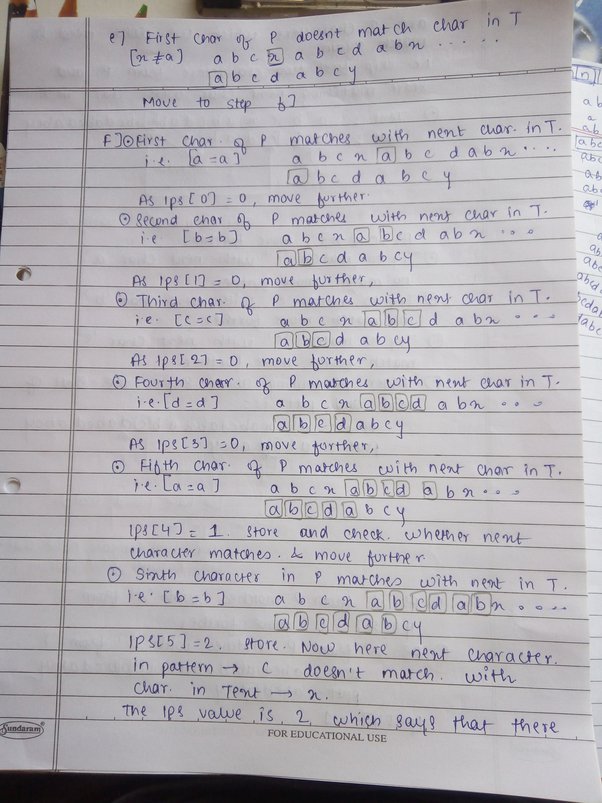 e] First char of P doesnt match char in T
[x ≠ a] a b c x a b c d a b x ......
a b c d a b c y
Move to step b]
F] ⊙ First char. of P matches with next char. in T.
i.e. [a = a] a b c x a b c d a b x ....
a b c d a b c y
As lps[0] = 0, move further.
⊙ Second char of P matches with next char in T.
i.e [b = b] a b c x a b c d a b x ...
a b c d a b c y
As lps[1] = 0, move further,
⊙ Third char. of P matches with next char in T.
i.e. [c = c] a b c x a b c d a b x ...
a b c d a b c y
As lps[2] = 0, move further,
⊙ Fourth char. of P matches with next char in T.
i.e. [d = d] a b c x a b c d a b x ...
a b c d a b c y
As lps[3] = 0, move further,
⊙ Fifth char. of P matches with next char in T.
i.e. [a = a] a b c x a b c d a b x ...
a b c d a b c y
lps[4] = 1. store and check. whether next
character matches. & move further.
⊙ Sixth character in P matches with next in T.
i.e. [b = b] a b c x a b c d a b x ....
a b c d a b c y
lps[5] = 2. store. Now here next character.
in pattern → c doesn't match. with
char. in Text → x.
The lps value is 2, which says that there
Sundaram
FOR EDUCATIONAL USE
[n]
ab
a
ab
abc
abc
ab
ab
a
ab
abc
abcd
bcdab
dabc